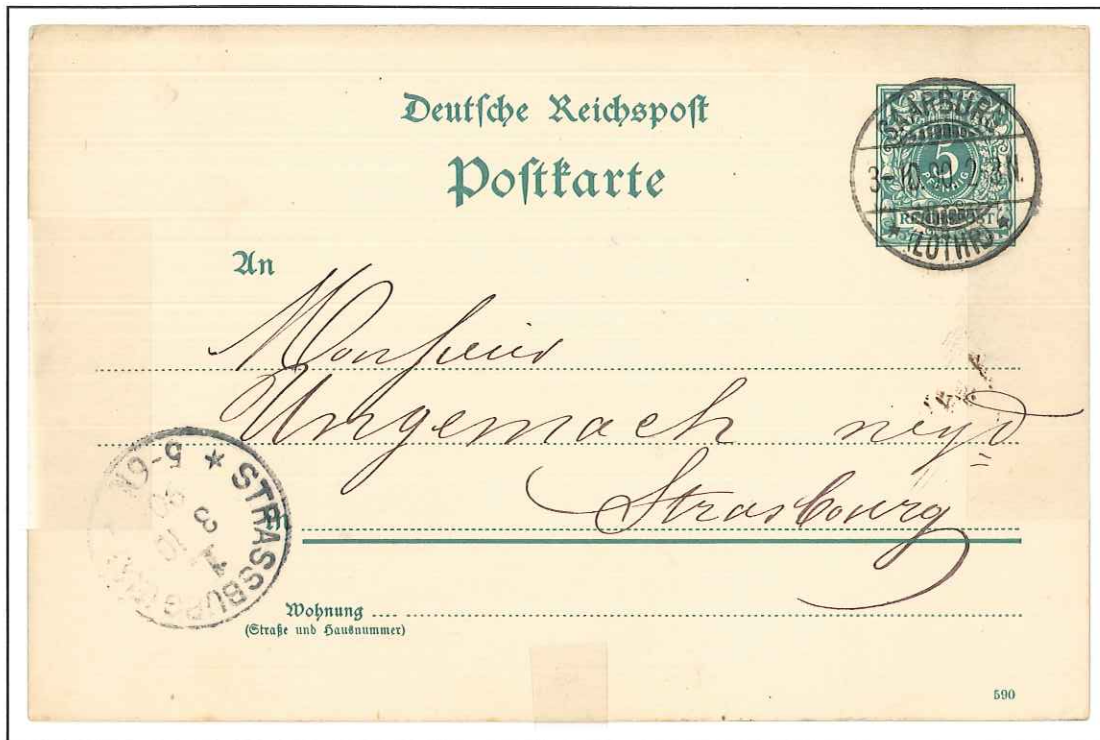 Deutsche Reichspost
Postkarte
SAARBURG
3-10.90.2-3N.
* (LOTHR) *
5
PFENNIG
REICHSPOST
An
Monsieur
Ungemach negt
Strasbourg
* STRASSBURG
5-6N
3
10
90
Wohnung
(Straße und Hausnummer)
590